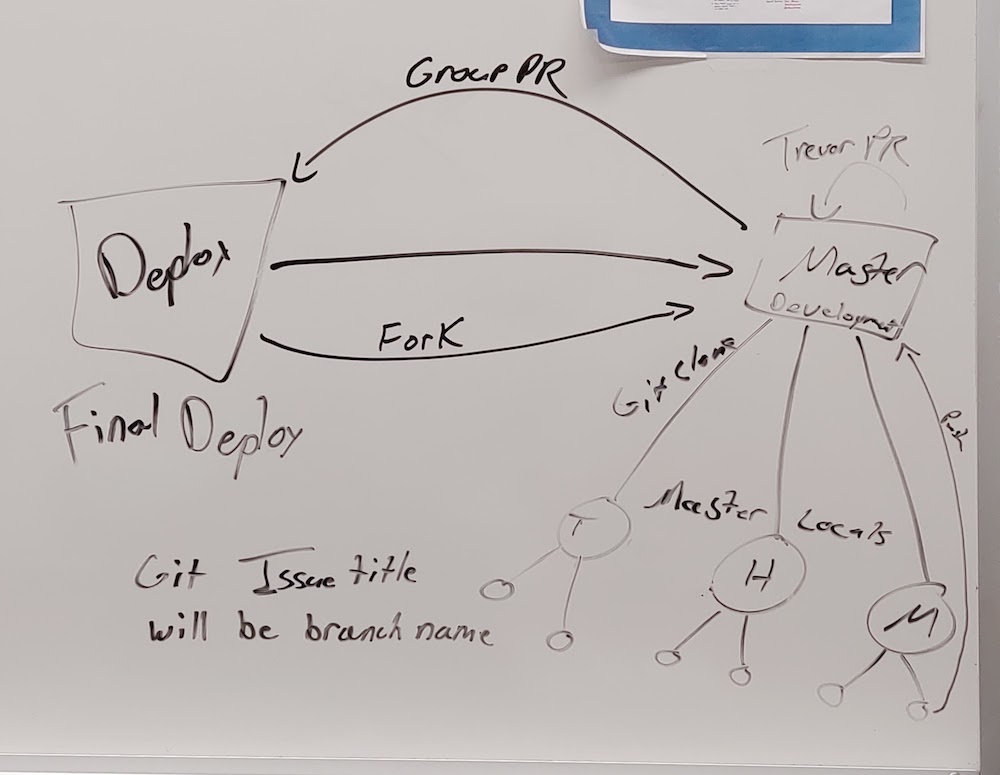 Group PR
Trevor PR
Deploy
Master
Development
Fork
Git Clone
Push
Final Deploy
Master Locals
T
H
M
Git Issue title
will be branch name